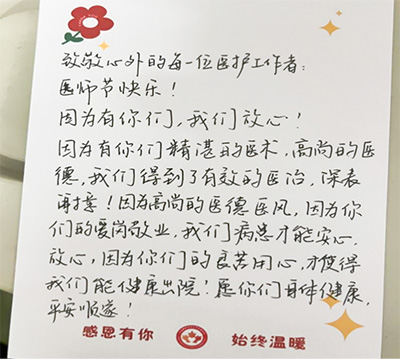 致敬心外的每一位医护工作者:
医师节快乐!
因为有你们,我们放心!
因为有你们精湛的医术,高尚的医
德,我们得到了有效的医治,深表
再授意!因为高尚的医德医风,因为你
们的爱岗敬业,我们病患才能安心,
放心,因为你们的良苦用心,才使得
我们能健康出院!愿你们身体健康,
平安顺遂!
感恩有你 始终温暖